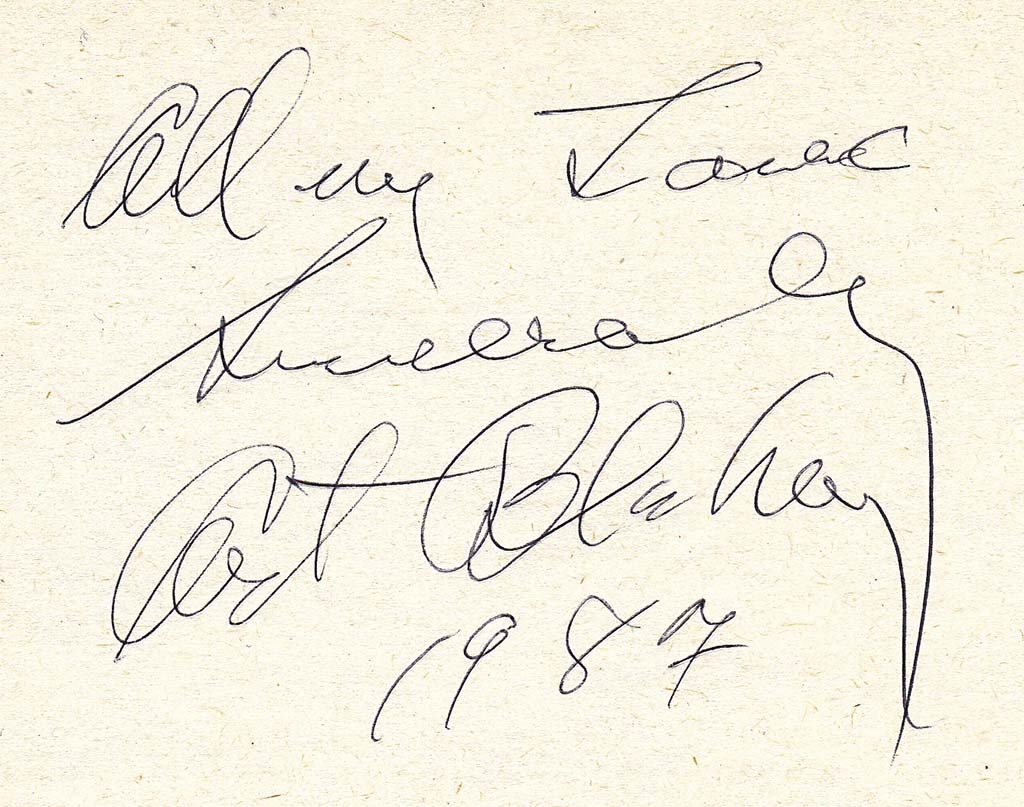 All my Love
Sincerely
Art Blakey
1987